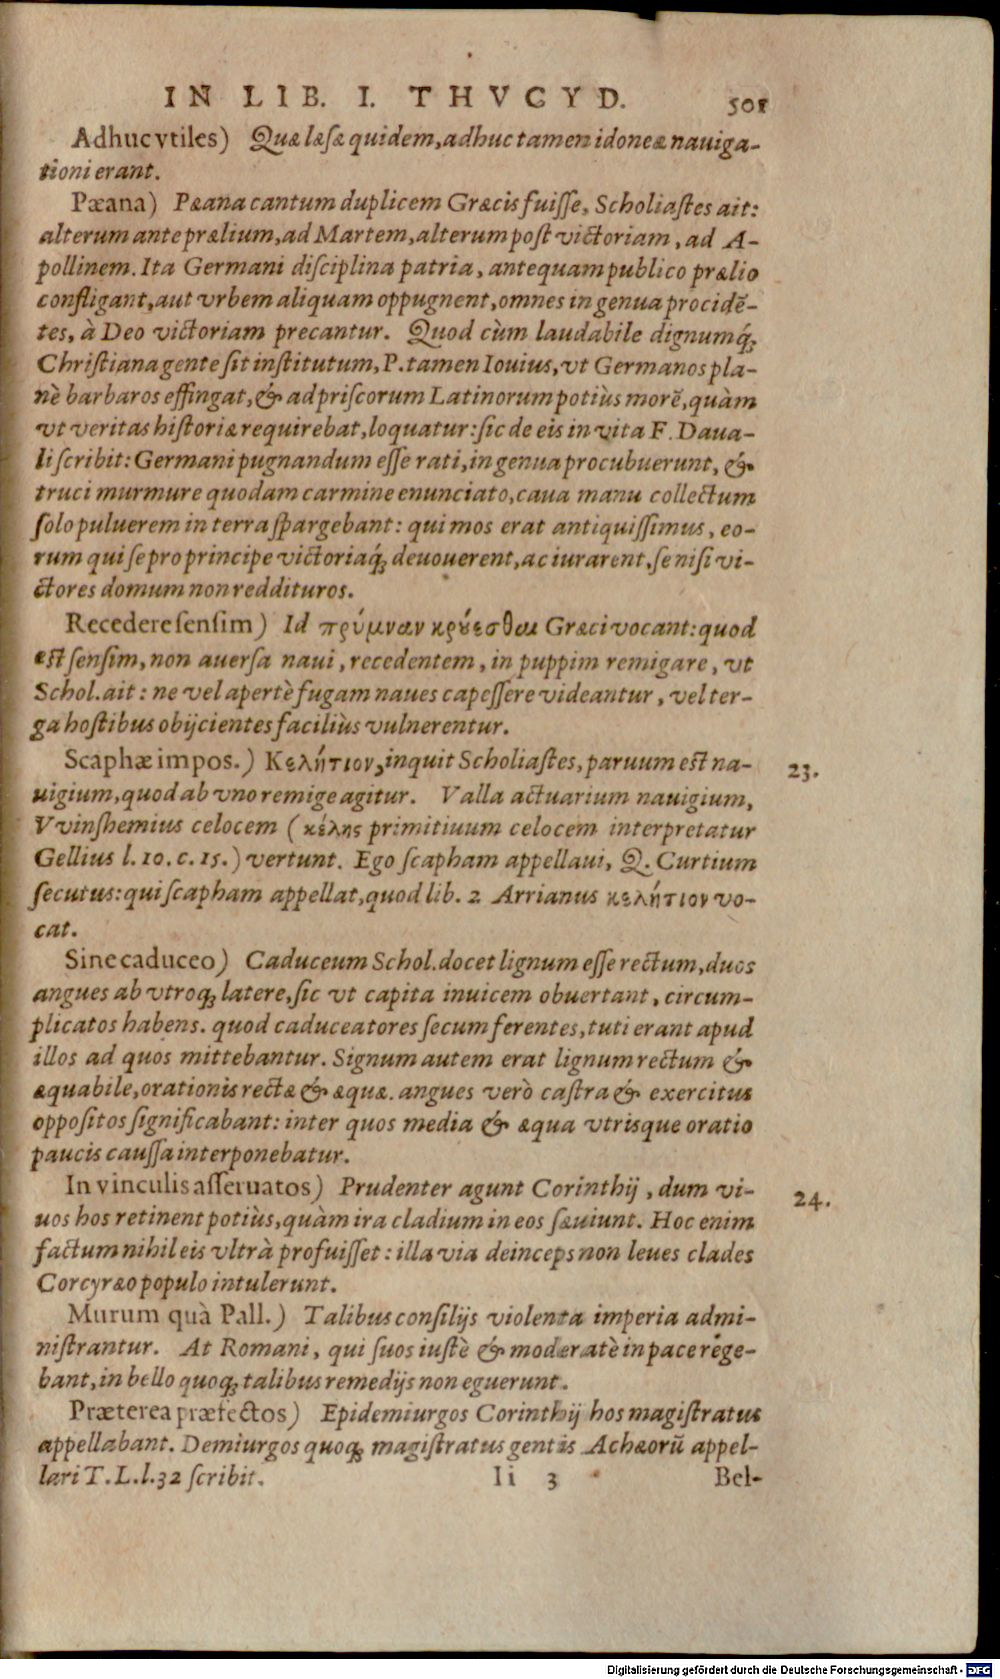 IN LIB. I. THVCYD. 501
Adhuc vtiles) Quæ læsæ quidem, adhuc tamen idoneæ nauiga-
tioni erant.
Pæana) Pæana cantum duplicem Græcis fuiſſe, Scholiaſtes ait:
alterum ante prælium, ad Martem, alterum poſt victoriam, ad A-
pollinem. Ita Germani diſciplina patria, antequam publico prælio
confligant, aut vrbem aliquam oppugnent, omnes in genua procidẽ-
tes, à Deo victoriam precantur. Quod cùm laudabile dignumq́;
Chriſtiana gente ſit inſtitutum, P. tamen Iouius, vt Germanos pla-
nè barbaros effingat, & ad priſcorum Latinorum potiùs morẽ, quàm
vt veritas hiſtoriæ requirebat, loquatur: ſic de eis in vita F. Daua-
li ſcribit: Germani pugnandum eſſe rati, in genua procubuerunt, &
truci murmure quodam carmine enunciato, caua manu collectum
ſolo puluerem in terra ſpargebant: qui mos erat antiquiſſimus, eo-
rum qui ſe pro principe victoriaq́; deuouerent, ac iurarent, ſe niſi vi-
ctores domum non reddituros.
Recedere ſenſim) Id πρύμναν κρύεσθαι Græci vocant: quod
eſt ſenſim, non auerſa naui, recedentem, in puppim remigare, vt
Schol. ait: ne vel apertè fugam naues capeſſere videantur, vel ter-
ga hoſtibus obijcientes faciliùs vulnerentur.
Scaphæ impos.) Κελήτιον, inquit Scholiaſtes, paruum eſt na- 23.
uigium, quod ab vno remige agitur. Valla actuarium nauigium,
Vvinſhemius celocem (κέλης primitiuum celocem interpretatur
Gellius l. 10. c. 15.) vertunt. Ego ſcapham appellaui, Q. Curtium
ſecutus: qui ſcapham appellat, quod lib. 2 Arrianus κελήτιον vo-
cat.
Sine caduceo) Caduceum Schol. docet lignum eſſe rectum, duos
angues ab vtroq; latere, ſic vt capita inuicem obuertant, circum-
plicatos habens. quod caduceatores ſecum ferentes, tuti erant apud
illos ad quos mittebantur. Signum autem erat lignum rectum &
æquabile, orationis rectæ & æquæ. angues verò caſtra & exercitus
oppoſitos ſignificabant: inter quos media & æqua vtrisque oratio
paucis cauſſa interponebatur.
In vinculis aſſeruatos) Prudenter agunt Corinthij, dum vi- 24.
uos hos retinent potiùs, quàm ira cladium in eos ſæuiunt. Hoc enim
factum nihil eis vltrà profuiſſet: illa via deinceps non leues clades
Corcyræo populo intulerunt.
Murum quà Pall.) Talibus conſilijs violenta imperia admi-
niſtrantur. At Romani, qui ſuos iuſtè & moderatè in pace rege-
bant, in bello quoq; talibus remedijs non eguerunt.
Præterea præfectos) Epidemiurgos Corinthij hos magiſtratus
appellabant. Demiurgos quoq; magiſtratus gentis Achæorũ appel-
lari T. L. l. 32 ſcribit. Ii 3 Bel-
Digitalisierung gefördert durch die Deutsche Forschungsgemeinschaft - DFG